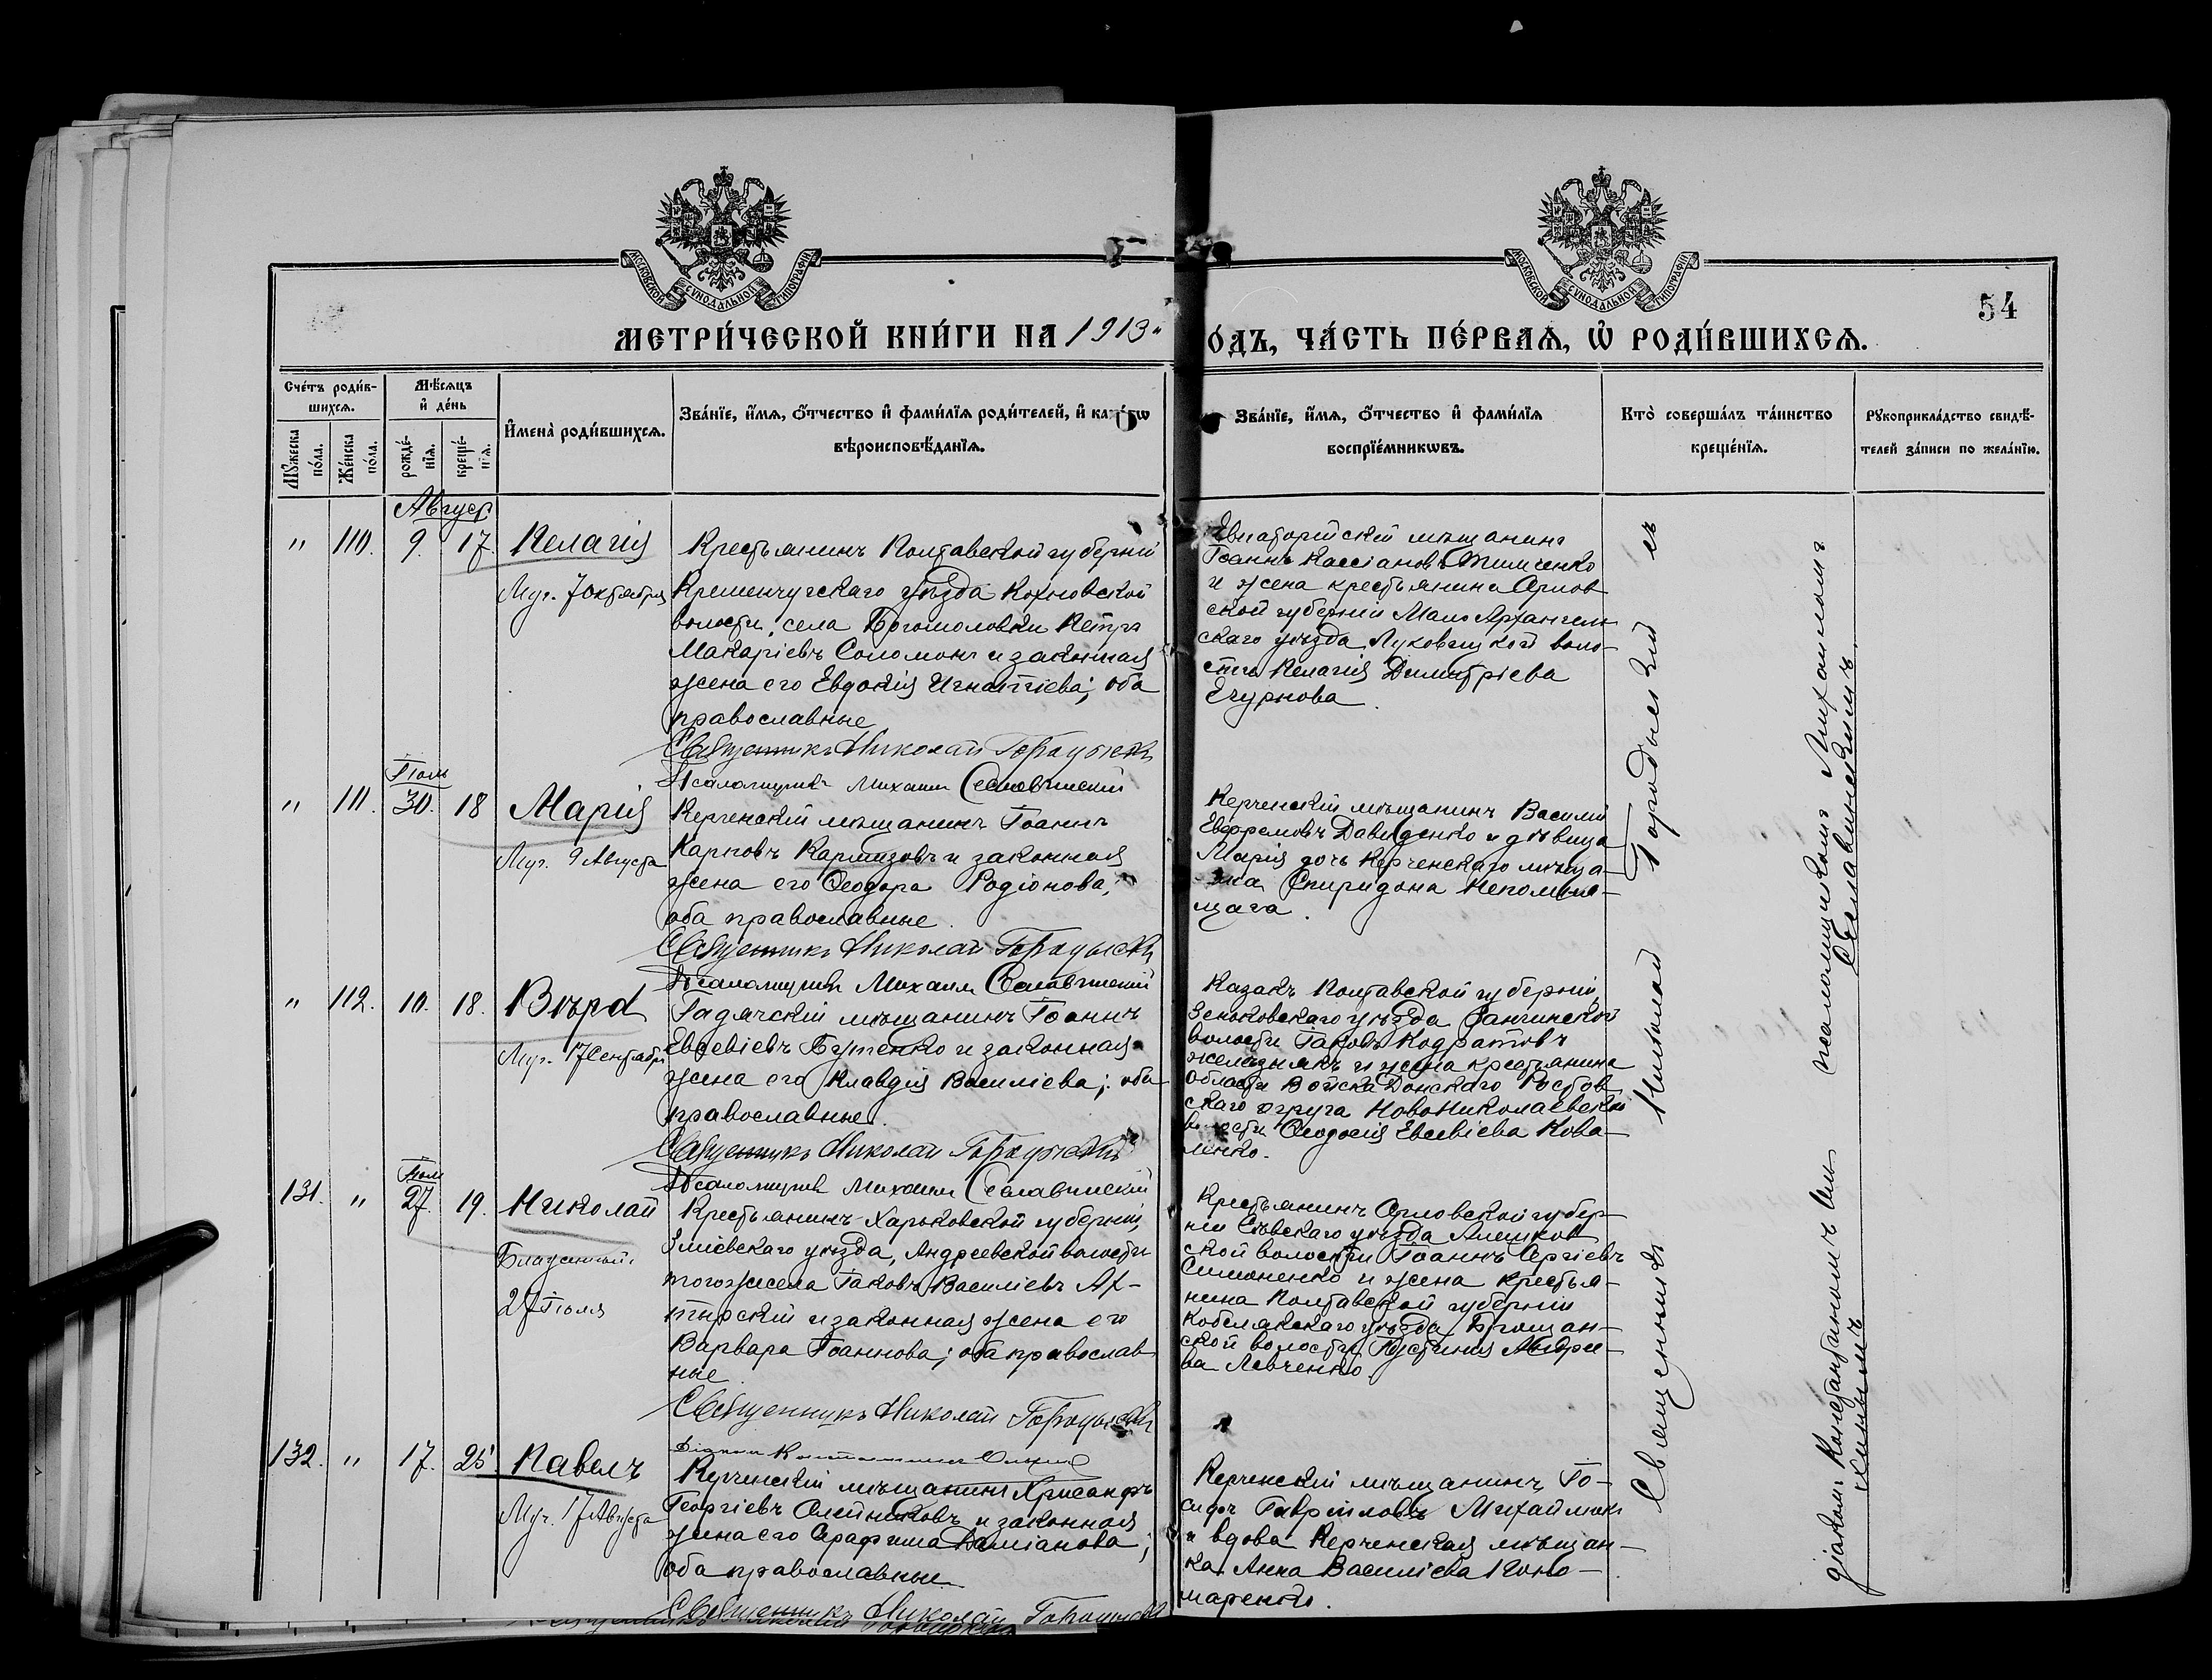 МОСКОВСКОЙ СѴНОДАЛЬНОЙ ТИПОГРАФІИ
МОСКОВСКОЙ СѴНОДАЛЬНОЙ ТИПОГРАФІИ
54
МЕТРИ́ЧЕСКОЙ КНИ́ГИ НА 1913
О́ДЪ, ЧА́СТЬ ПЕ́РВАѦ, Ѡ РОДИ́ВШИХСѦ.
Сче́тъ роди́в-
шихсѧ.
Мꙋжеска по́ла.
Же́нска по́ла.
Мѣ́сѧцъ и де́нь
рожде́-
нїѧ.
креще́-
нїѧ.
Имена̀ роди́вшихсѧ.
Зва́нїе, и́мѧ, ѻ́тчество и фами́лїѧ роди́телей, и
вѣроисповѣ́данїѧ.
Зва́нїе, и́мѧ, ѻ́тчество и фами́лїѧ
воспрїе́мникѡвъ.
Кто̀ соверша́лъ та́инство
креще́нїѧ.
Рꙋкоприкла́дство свидѣ́-
телей за́писи по жела́нїю.
Август
" 110. 9. 17. Пелагія
Муч. 7 Октября
Крестьянинъ Полтавской губерніи
Кременчугскаго уѣзда Кохновской
волости, села Богомоловки Петръ
Макаріевъ Соломонъ и законная
жена его Евдокія Игнатіева; оба
православные
Священникъ Николай Городыскій
Псаломщикъ Михаилъ Сѣлавинскій
Евпаторійскій мѣщанинъ
Іоаннъ Кассіановъ Тимченко
и жена крестьянина Орлов
ской губерніи Мало Архангель
скаго уѣзда, Луковецкой воло-
сти Пелагія Димитріева
Іюля
" 111. 30. 18 Марія
Муч. 9 Августа
Керченскій мѣщанинъ Іоаннъ
Карповъ Кармизовъ и законная
жена его Ѳеодора Родіонова,
оба православные.
Священникъ Николай Городыскій
Псаломщикъ Михаилъ Сѣлавинскій
Керченскій мѣщанинъ Василій
Евфремовъ Давиденко и дѣвица
Марія дочь Керченскаго мѣща-
нина Спиридона Непомня-
щаго.
" 112. 10. 18. Вѣра
Муч. 17 Сентября
Гадячскій мѣщанинъ Іоаннъ
Евсевіевъ Бутенко и законная
жена его Клавдія Василіева; оба
православные.
Священникъ Николай Городыскій
Псаломщикъ Михаилъ Сѣлавинскій
Казакъ Полтавской губерніи,
Зеньковскаго уѣзда
волости Іаковъ Кодратовъ
Желѣзнякъ и жена крестьянина
Области Войска Донскаго Ростов
скаго округа НовоНиколаевской
волости Ѳеодосія Евсевіева Кова-
ленко.
Іюля
131. " 27. 19. Николай
Блаженный.
27 Іюля
Крестьянинъ Харьковской губерніи,
Зміевскаго уѣзда, Андреевской волости
того же села Іаковъ Василіевъ Ах-
тырскій и законная жена его
Варвара Іоаннова; оба православ
ные.
Священникъ Николай Городыскій
Крестьянинъ Орловской губер-
ніи Сѣвскаго уѣзда
ской волости Іоаннъ Сергіевъ
Симоненко и жена крестья-
нина Полтавской губерніи
Кобелякскаго уѣзда
ской волости Іустинія Андрее-
ва Левченко.
132. " 17. 25 Павелъ
Муч. 17 Августа
Керченскій мѣщанинъ Хрисанфъ
Георгіевъ Олейниковъ и законная
жена его Серафима Даміанова;
оба православные
Священникъ Николай Городыскій
Керченскій мѣщанинъ Іо-
сифъ Гавріиловъ Михайлюкъ
и вдова Керченская мѣщан-
ка Анна Василіева Поно-
маренко.
Священникъ Николай Городыскій съ
діакономъ Константиномъ псаломщикомъ Михаиломъ
Сѣлавинскимъ.